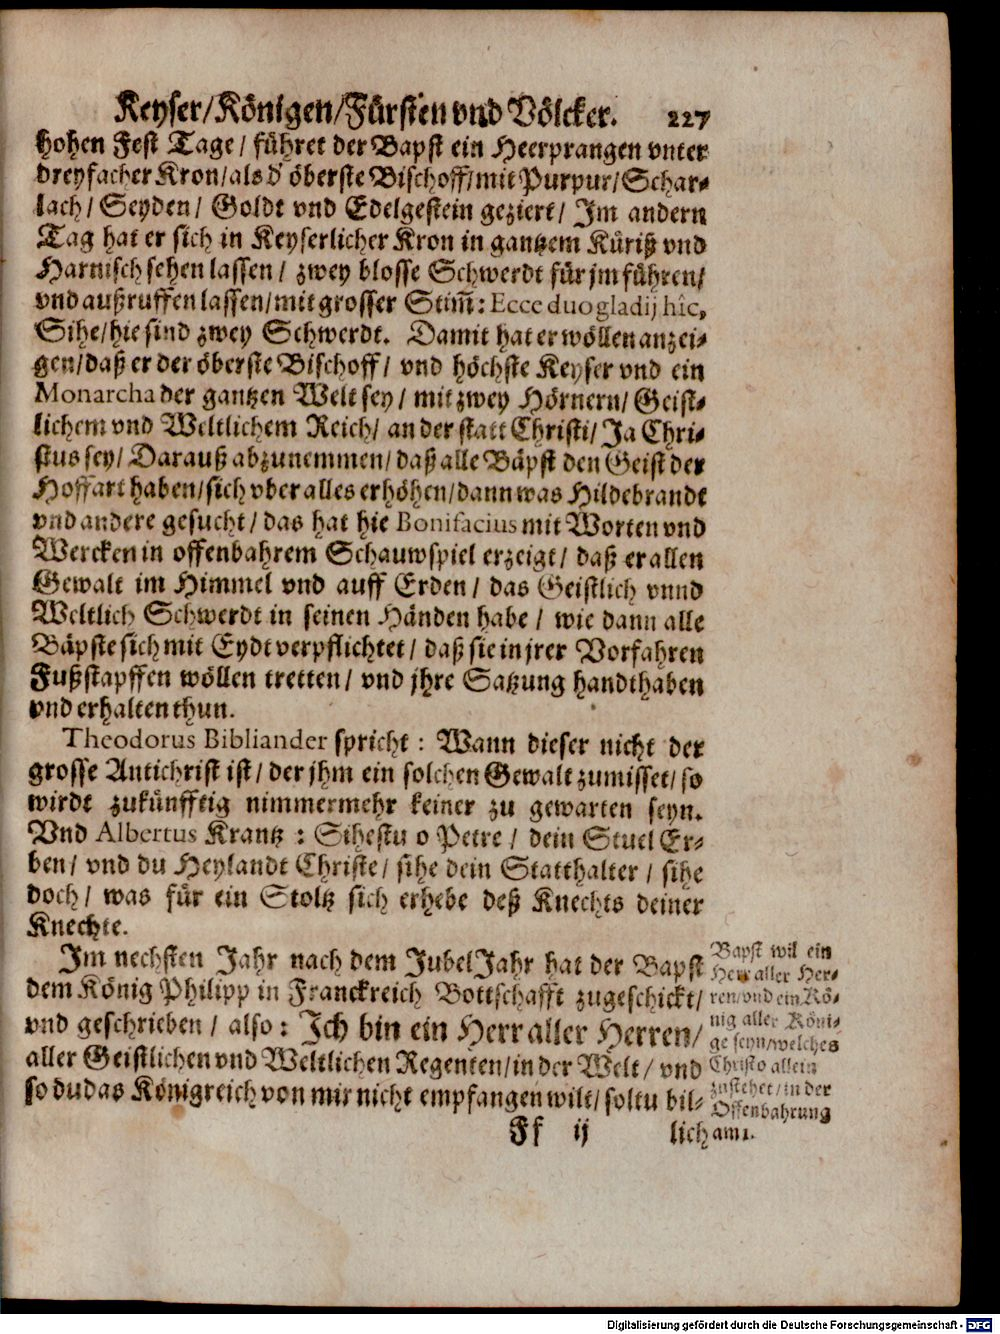 Keyser/Königen/Fürsten vnd Völcker. 227
hohen Fest Tage/ führet der Bapst ein Heerprangen vnter
dreyfacher Kron/als d' öberste Bischoff/mit Purpur/Schar-
lach/ Seyden/ Goldt vnd Edelgestein geziert/ Im andern
Tag hat er sich in Keyserlicher Kron in gantzem Küriß vnd
Harnisch sehen lassen/ zwey blosse Schwerdt für jm führen/
vnd außruffen lassen/mit grosser Stim̅: Ecce duo gladij hîc,
Sihe/hie sind zwey Schwerdt. Damit hat er wöllen anzei-
gen/daß er der öberste Bischoff/ vnd höchste Keyser vnd ein
Monarcha der gantzen Welt sey/ mit zwey Hörnern/ Geist-
lichem vnd Weltlichem Reich/ an der statt Christi/ Ja Chri-
stus sey/ Darauß abzunemmen/daß alle Bäpst den Geist der
Hoffart haben/sich vber alles erhöhen/dann was Hildebrandt
vnd andere gesucht/das hat hie Bonifacius mit Worten vnd
Wercken in offenbahrem Schauwspiel erzeigt/ daß er allen
Gewalt im Himmel vnd auff Erden/ das Geistlich vnnd
Weltlich Schwerdt in seinen Händen habe/ wie dann alle
Bäpste sich mit Eydt verpflichtet/ daß sie in jrer Vorfahren
Fußstapffen wöllen tretten/ vnd jhre Satzung handthaben
vnd erhalten thun.
Theodorus Bibliander spricht: Wann dieser nicht der
grosse Antichrist ist/der jhm ein solchen Gewalt zumisset/so
wirdt zukünfftig nimmermehr keiner zu gewarten seyn.
Vnd Albertus Krantz: Sihestu o Petre/ dein Stuel Er-
ben/ vnd du Heylandt Christe/ sihe dein Statthalter/ sihe
doch/ was für ein Stoltz sich erhebe deß Knechts deiner
Knechte.
Im nechsten Jahr nach dem Jubel Jahr hat der Bapst
dem König Philipp in Franckreich Bottschafft zugeschickt/
vnd geschrieben/ also: Ich bin ein Herr aller Herren/
aller Geistlichen vnd Weltlichen Regenten/in der Welt/ vnd
so du das Königreich von mir nicht empfangen wilt/ soltu bil-
Bapst wil ein
Herr aller Her-
ren/vnd ein Kö-
nig aller Köni-
ge seyn/welches
Christo allein
zustehet/in der
Offenbahrung
am 1.
Ff ij lich
Digitalisierung gefördert durch die Deutsche Forschungsgemeinschaft - DFG